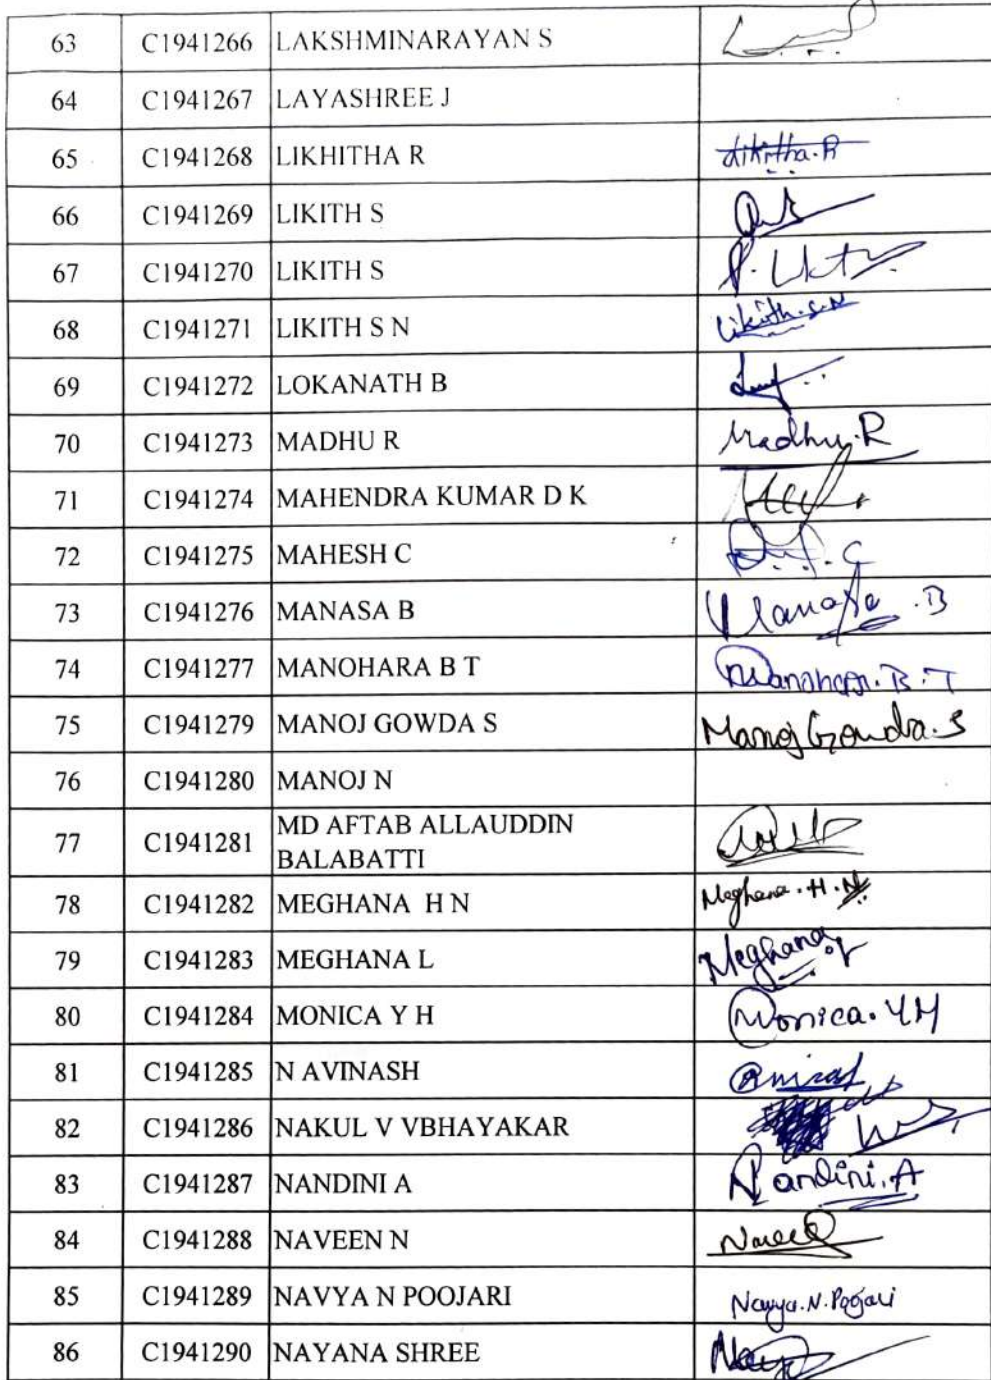 63 C1941266 LAKSHMINARAYAN S
64 C1941267 LAYASHREE J
65 C1941268 LIKHITHA R Likitha.R
66 C1941269 LIKITH S
67 C1941270 LIKITH S
68 C1941271 LIKITH S N Likith.S.N
69 C1941272 LOKANATH B
70 C1941273 MADHU R Madhu.R
71 C1941274 MAHENDRA KUMAR D K
72 C1941275 MAHESH C
73 C1941276 MANASA B Manasa.B
74 C1941277 MANOHARA B T Manohara.B.T
75 C1941279 MANOJ GOWDA S Manoj Gowda.S
76 C1941280 MANOJ N
77 C1941281 MD AFTAB ALLAUDDIN
BALABATTI
78 C1941282 MEGHANA H N Meghana.H.N
79 C1941283 MEGHANA L Meghana
80 C1941284 MONICA Y H Monica.YH
81 C1941285 N AVINASH
82 C1941286 NAKUL V VBHAYAKAR
83 C1941287 NANDINI A Nandini.A
84 C1941288 NAVEEN N
85 C1941289 NAVYA N POOJARI Navya.N.Poojari
86 C1941290 NAYANA SHREE